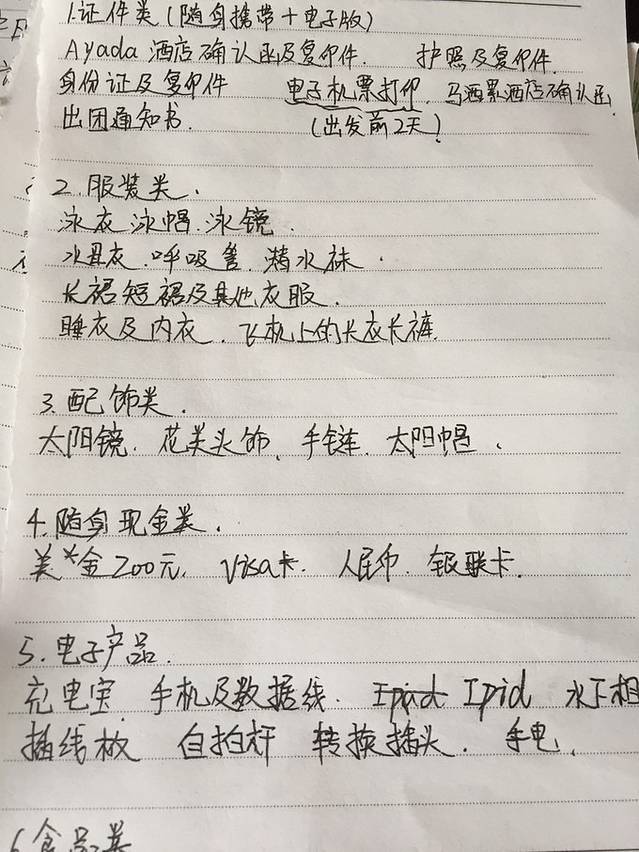 1.证件类(随身携带+电子版)
Ayada 酒店确认函及复印件. 护照及复印件.
身份证及复印件 电子机票打印. 马洒累酒店确认函.
出团通知书. (出发前2天)
2.服装类.
泳衣 泳帽.泳镜.
水母衣.呼吸管.潜水袜.
长裙短裙及其他衣服.
睡衣及内衣.飞机上的长衣长裤.
3.配饰类.
太阳镜.花类头饰.手链.太阳帽.
4.随身现金类.
美*金200元. Visa卡. 人民币. 银联卡.
5.电子产品.
充电宝 手机及数据线. Ipad Ipid 水下相
插线板 自拍杆 转换插头. 手电.
6.食品类